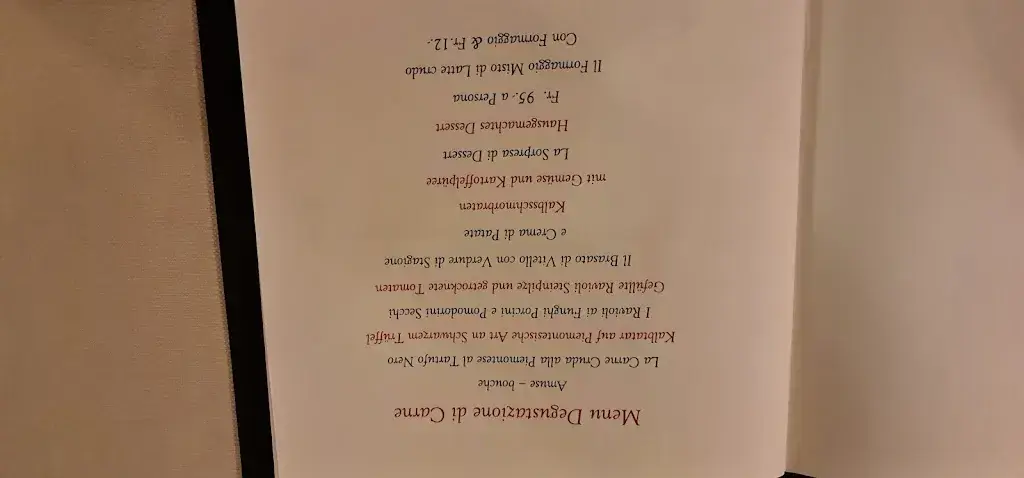 Menu Degustazione di Carne
Amuse – bouche
La Carne Cruda alla Piemontese al Tartufo Nero
Kalbtatar auf Piemontesische Art an Schwarzem Trüffel
I Ravioli ai Funghi Porcini e Pomodormi Secchi
Gefüllte Ravioli Steinpilze und getrocknete Tomaten
Il Brasato di Vitello con Verdure di Stagione
e Crema di Patate
Kalbsschmorbraten
mit Gemüse und Kartoffelpüree
La Sorpresa di Dessert
Hausgemachtes Dessert
Fr. 95.- a Persona
Il Formaggio Misto di Latte crudo
Con Formaggio & Fr.12.-